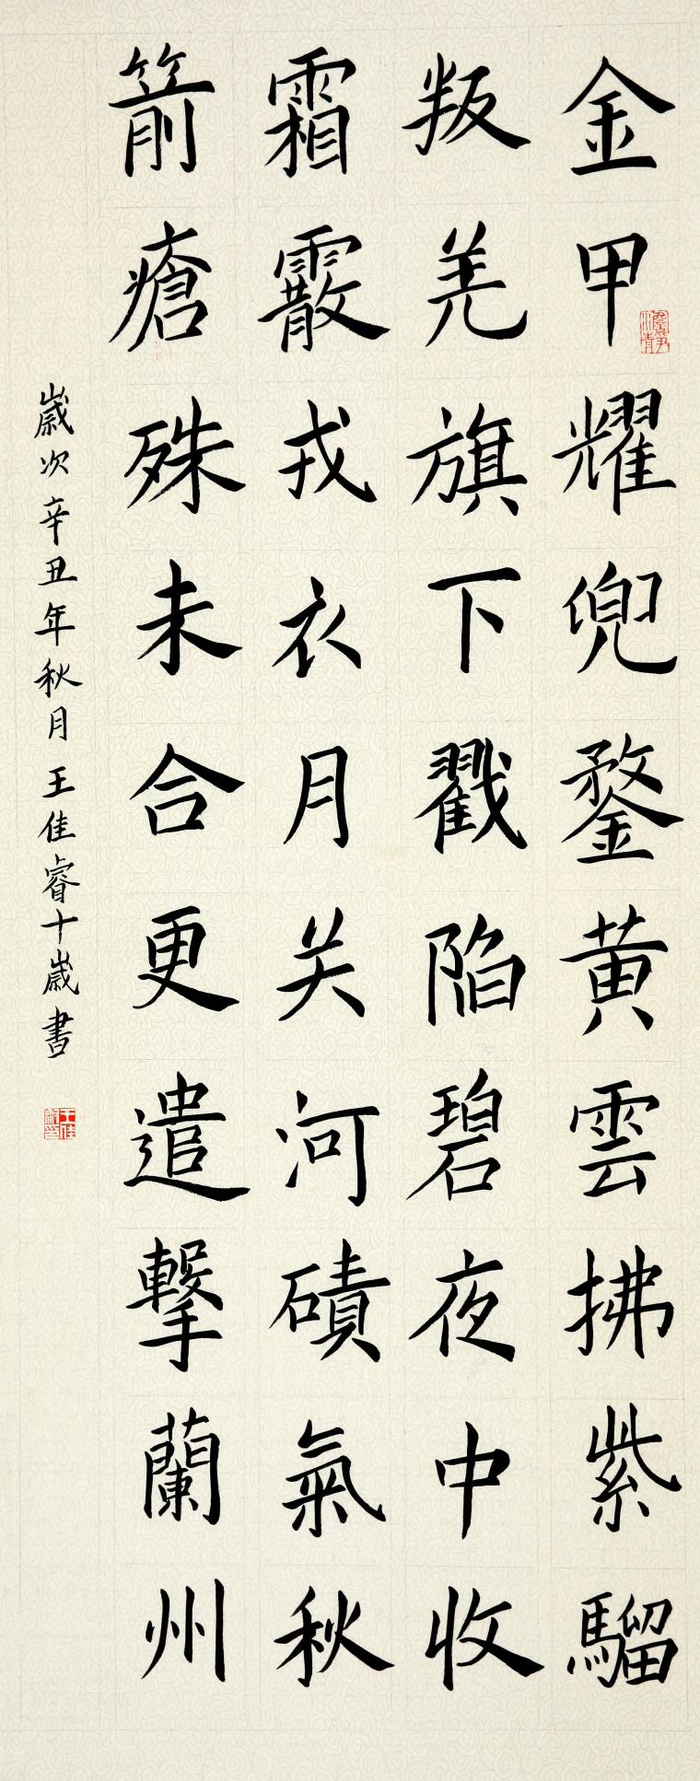 金甲耀兜鍪黄雲拂紫騮
叛羌旗下戮陷碧夜中收
霜霰戎衣月关河磧氣秋
箭瘡殊未合更遣擊蘭州
歲次辛丑年秋月王佳睿十歲書